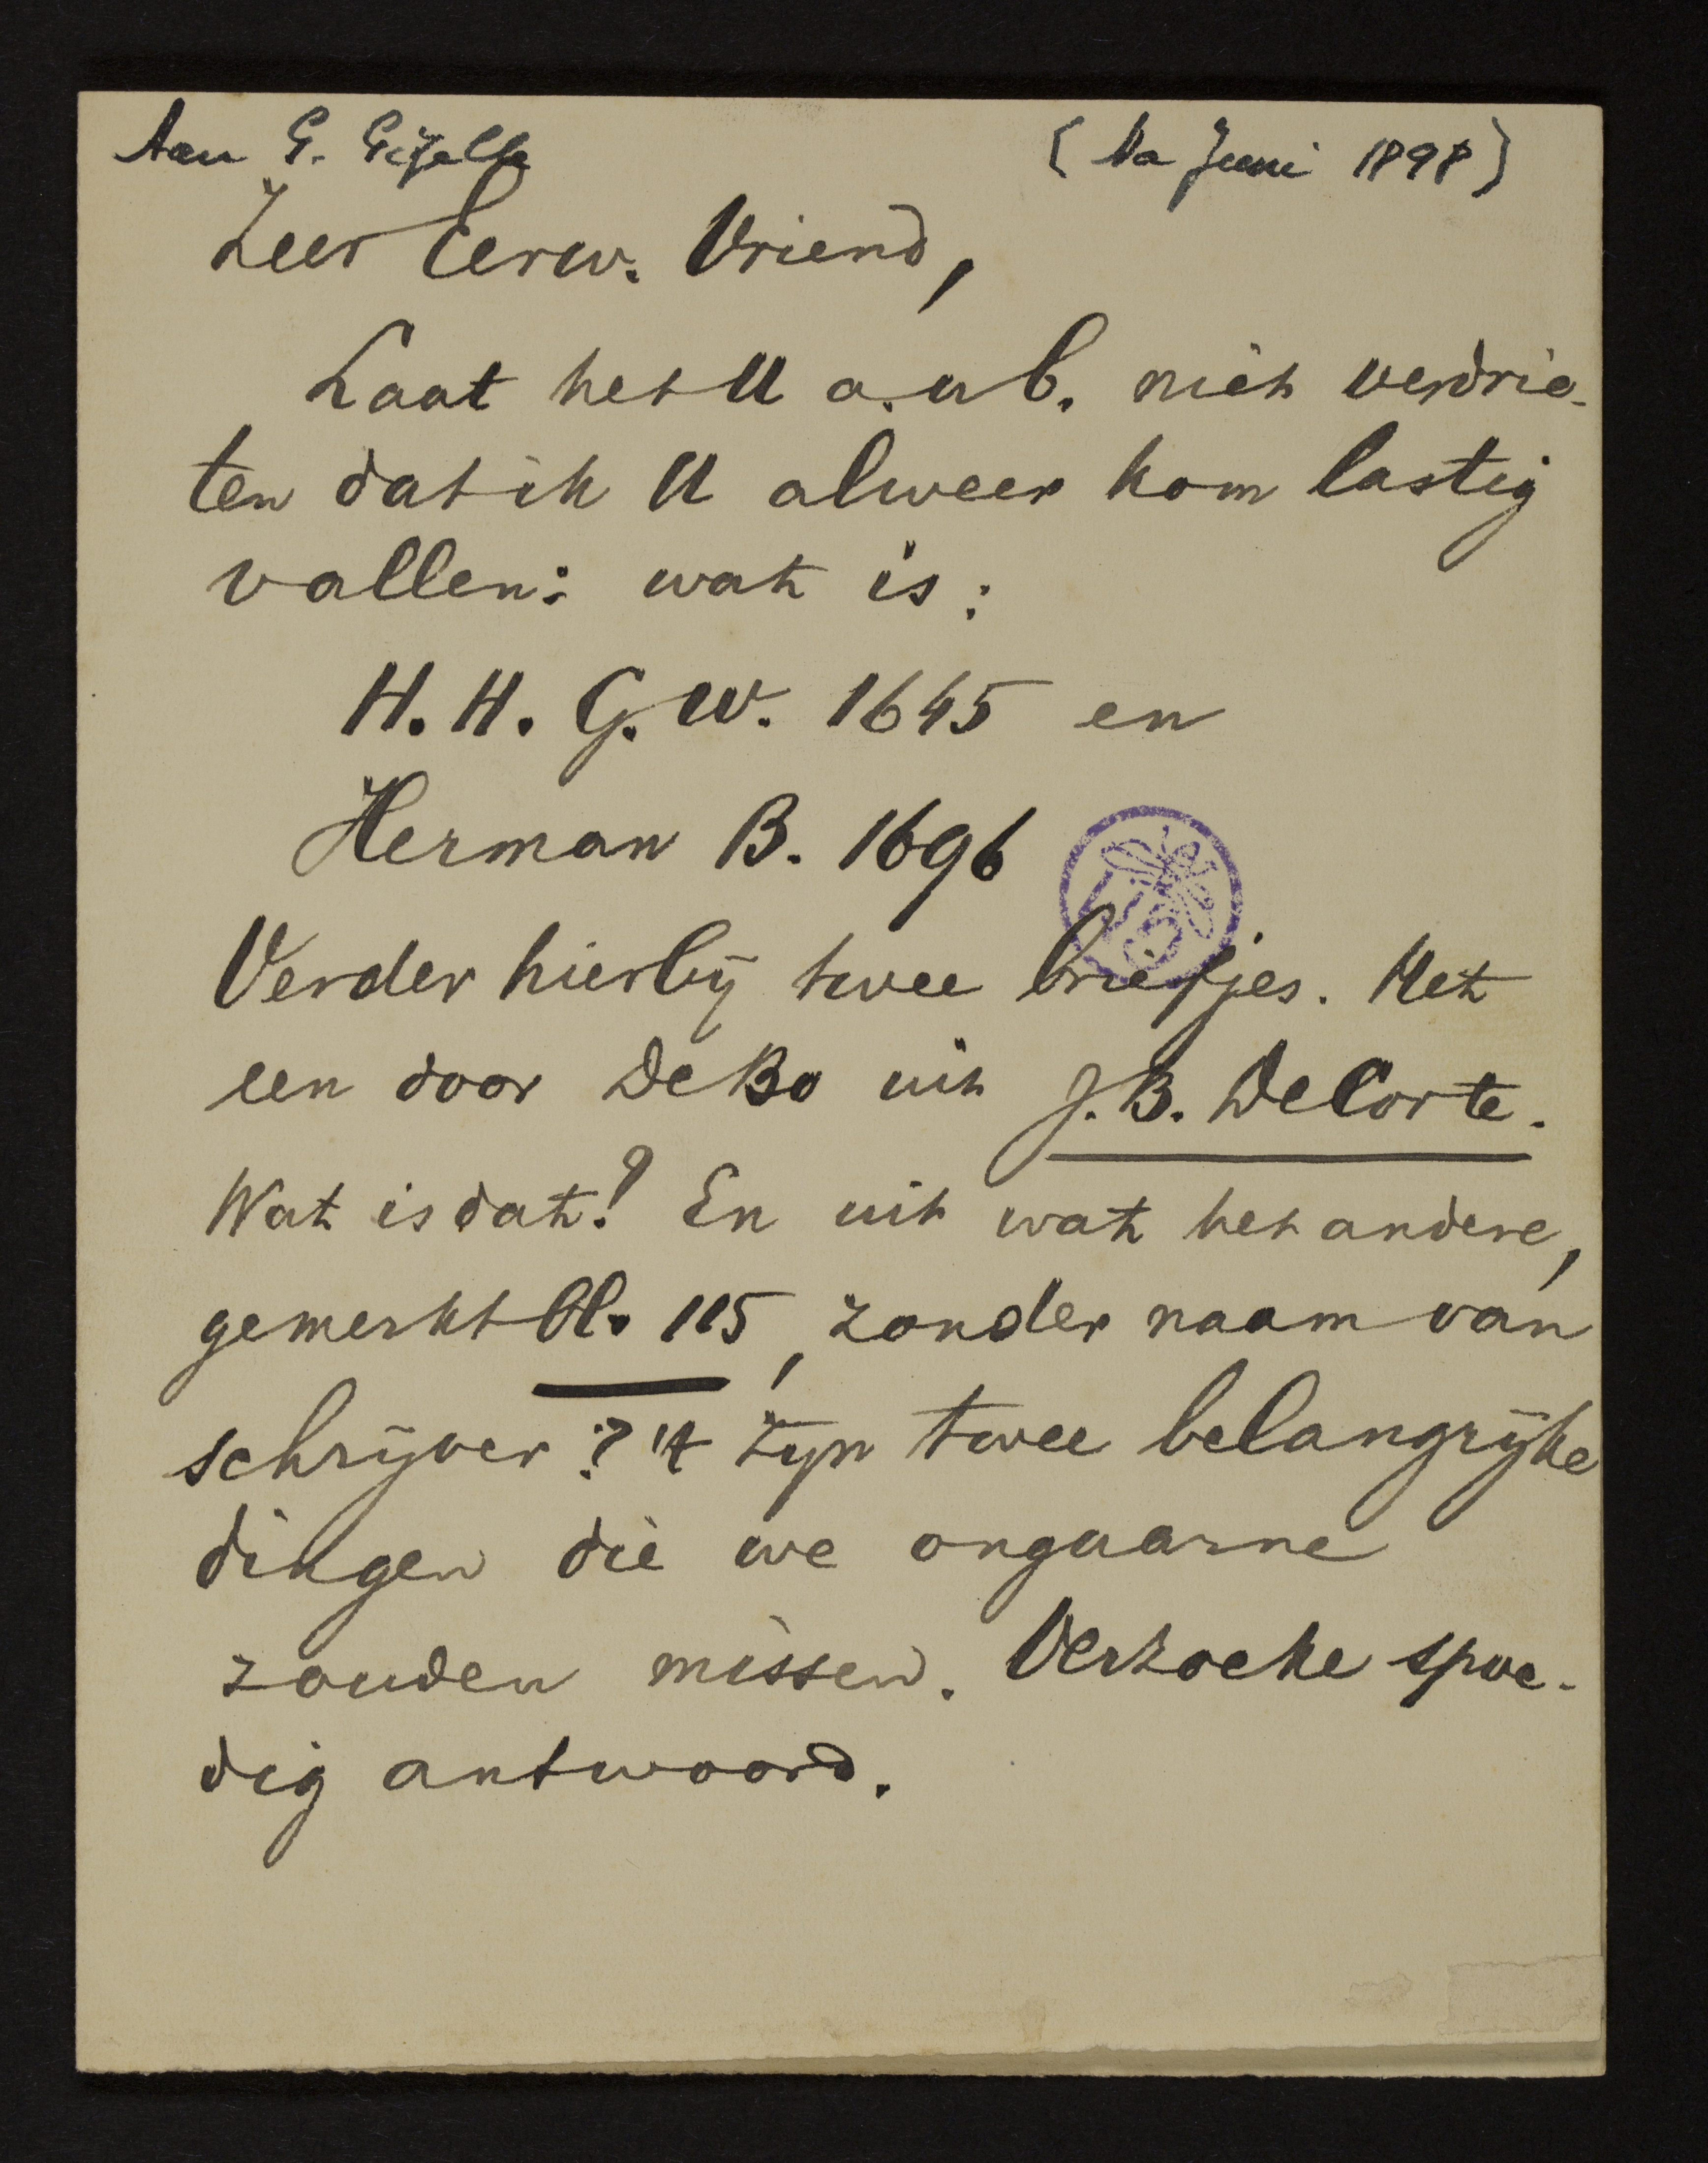 Aan G. Gezelle
(Na Juni 1898)
Zeer Eerw. Vriend,
Laat het U a.u b. niet verdrie-
ten dat ik U alweer kom lastig
vallen: wat is:
H. H. G. W. 1645 en
Herman B. 1696
Verder hierbij twee briefjes. Het
een door De Bo uit J. B. De Corte.
Wat is dat? En uit wat het andere,
gemerkt Bl. 115, zonder naam van
schrijver? 't zyn twee belangrijke
dingen die we ongaarne
zouden missen. Verzoeke spoe-
dig antwoord.